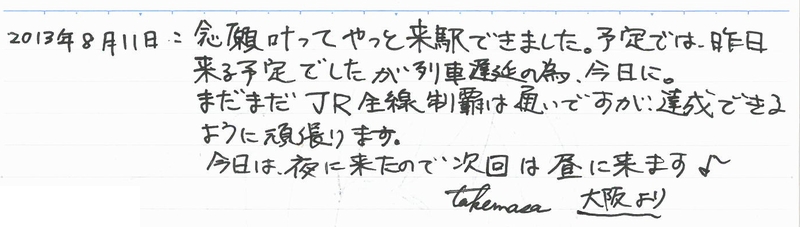 2013年8月11日：念願叶ってやっと来駅できました。予定では、昨日
来る予定でしたが列車遅延の為、今日に。
まだまだJR全線制覇は遠いですが、達成できる
ように頑張ります。
今日は、夜に来たので次回は昼に来ます♪
takemasa 大阪より